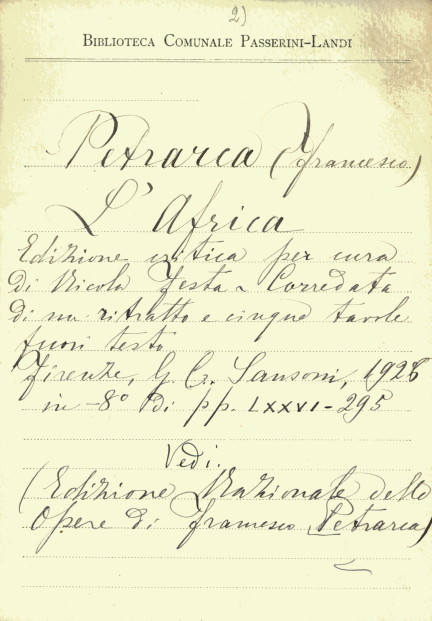 2)
BIBLIOTECA COMUNALE PASSERINI-LANDI
Petrarca (Francesco)
L'Africa
Edizione critica per cura
di Nicola Festa - Corredata
di un ritratto e cinque tavole
fuori testo
Firenze, G. C. Sansoni, 1926
in-8° di pp. LXXVI-295
Vedi.
(Edizione Nazionale delle
Opere di Francesco Petrarca)